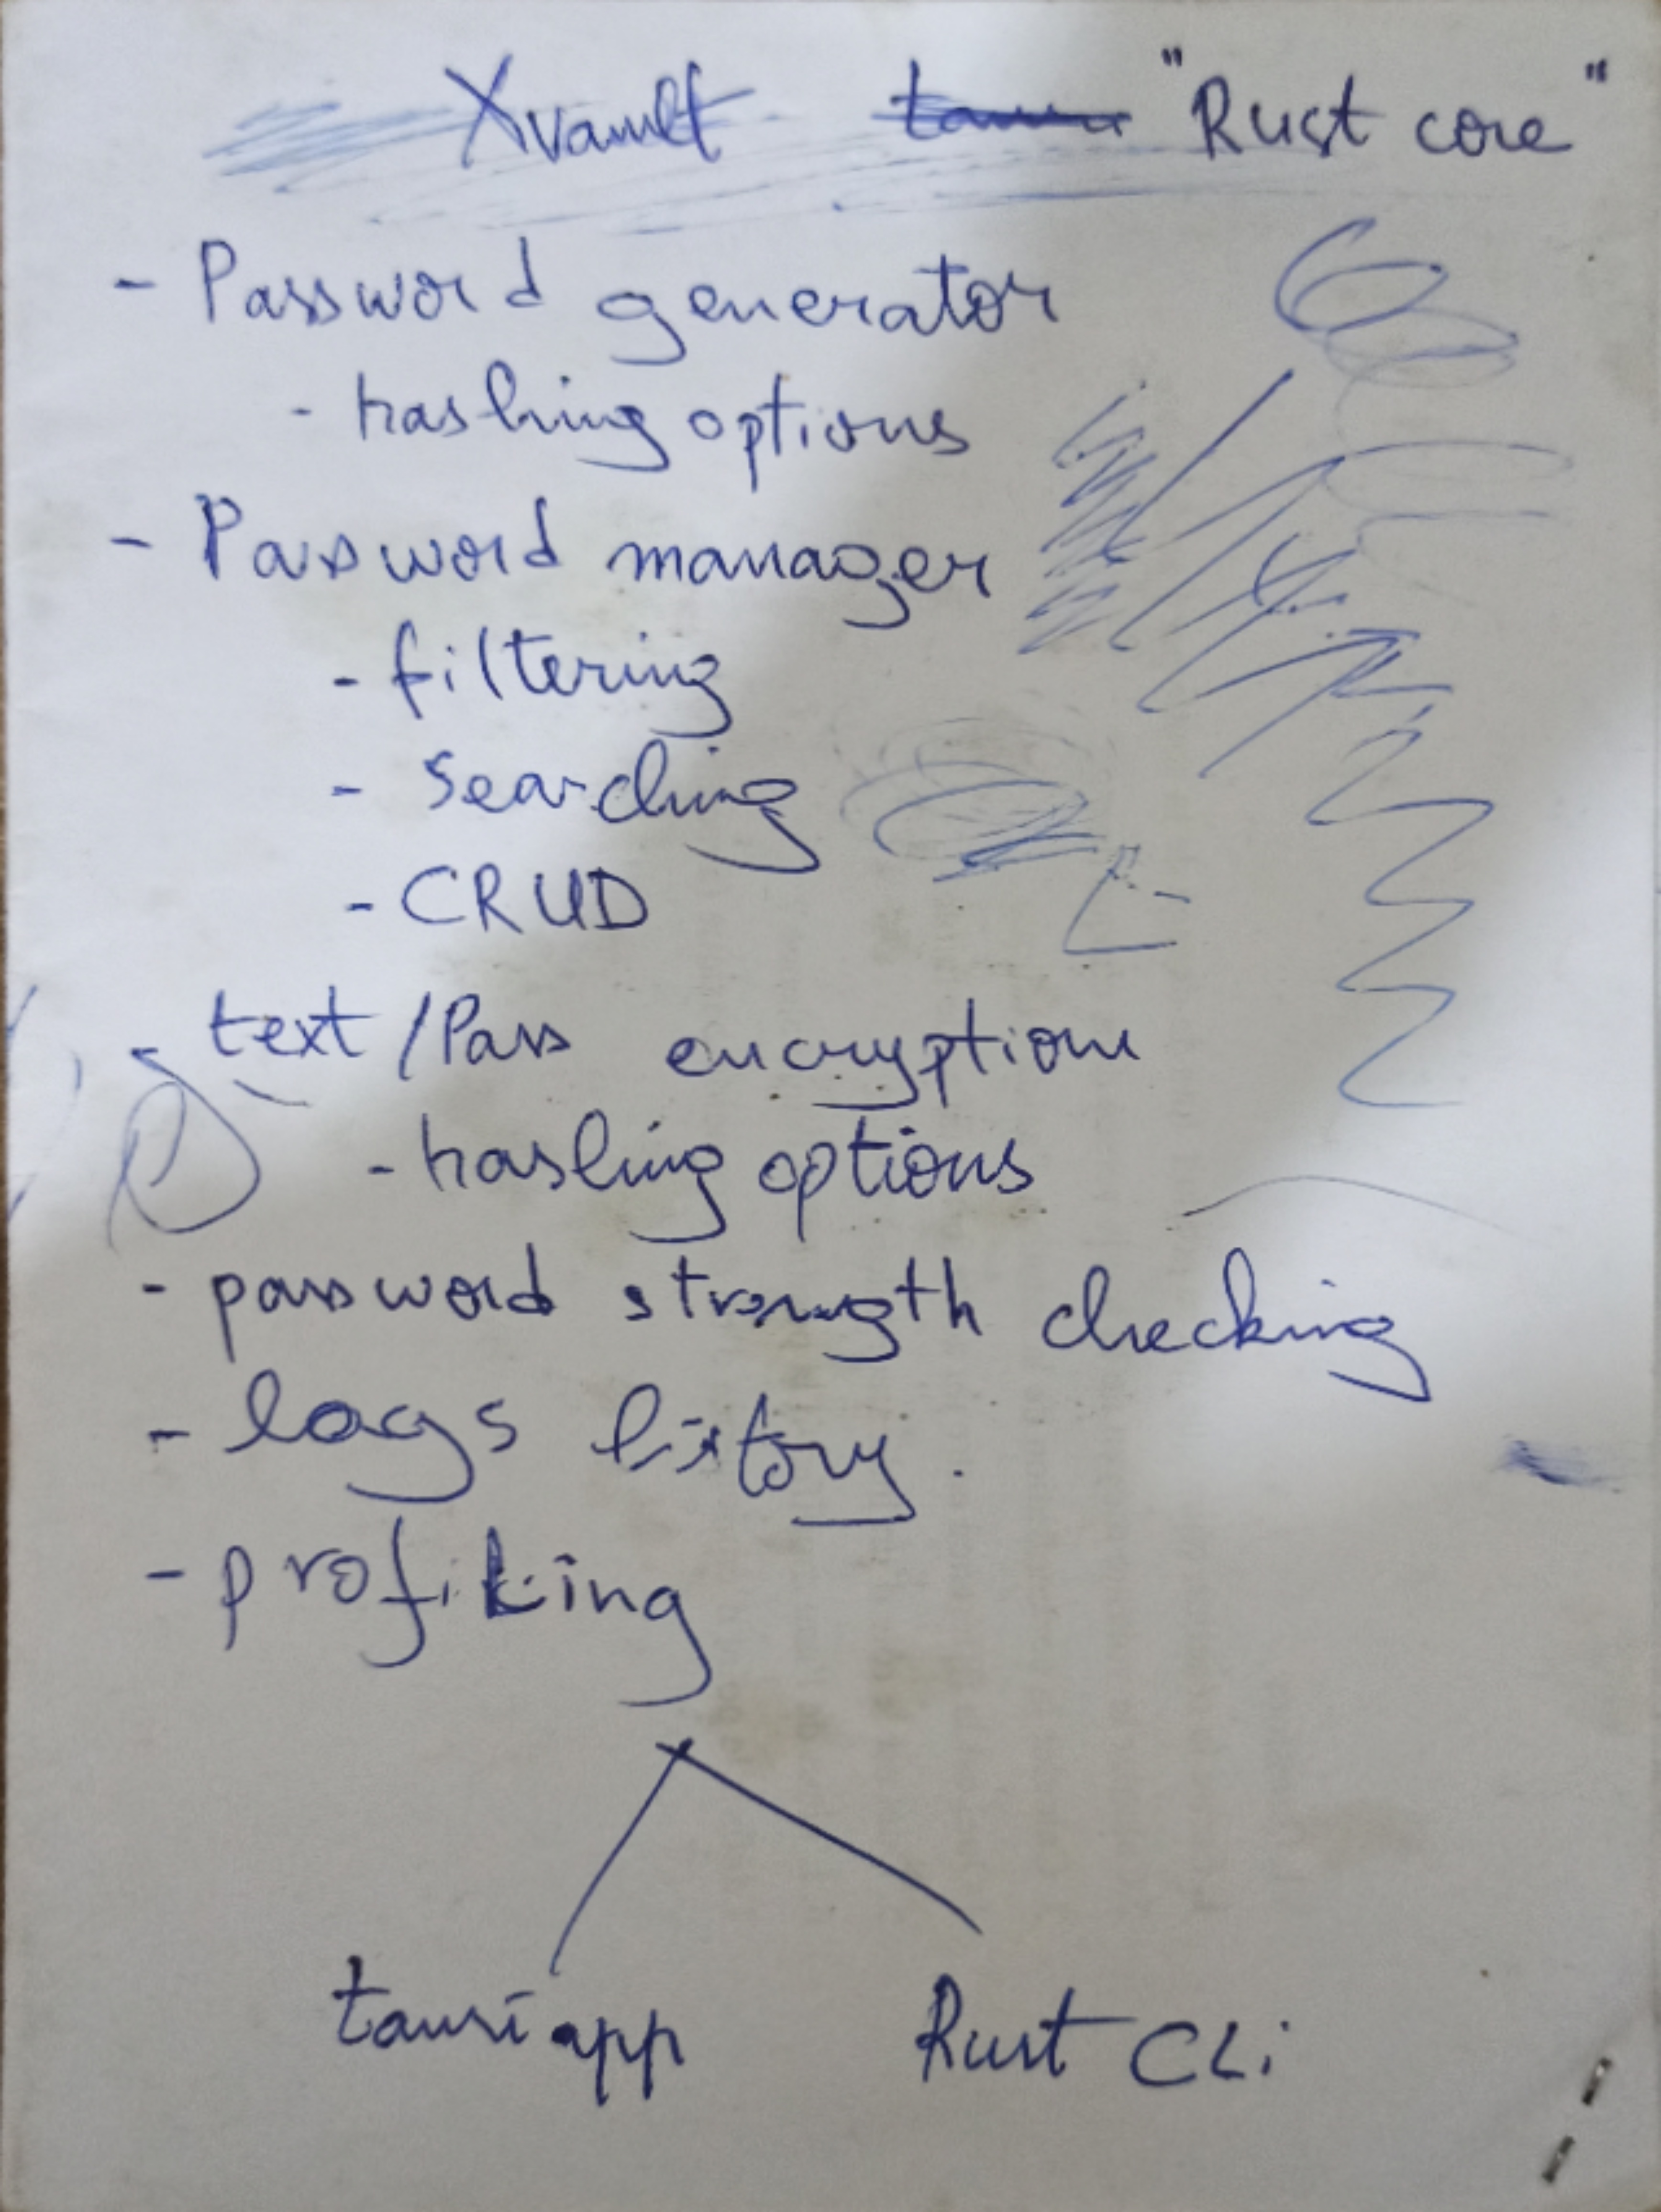 Xvault "Rust core"
- Password generator
- hashing options
- Password manager
- filtering
- searching
- CRUD
- text / Pass encryption
- hashing options
- password strength checking
- logs history.
- profiling
tauri app Rust CLi